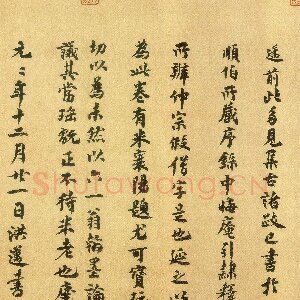 邁前此多見集古諸跋已書於
順伯所藏序錄晦庵引隸釋
所辨仲宗假借字是也延之以
為此卷有米襄陽題尤可寶玩
切以為未然以六一翁翰墨論
議其當瑶正不待米老也慶
元二年十二月廿一日洪邁書
Shufawang.cn